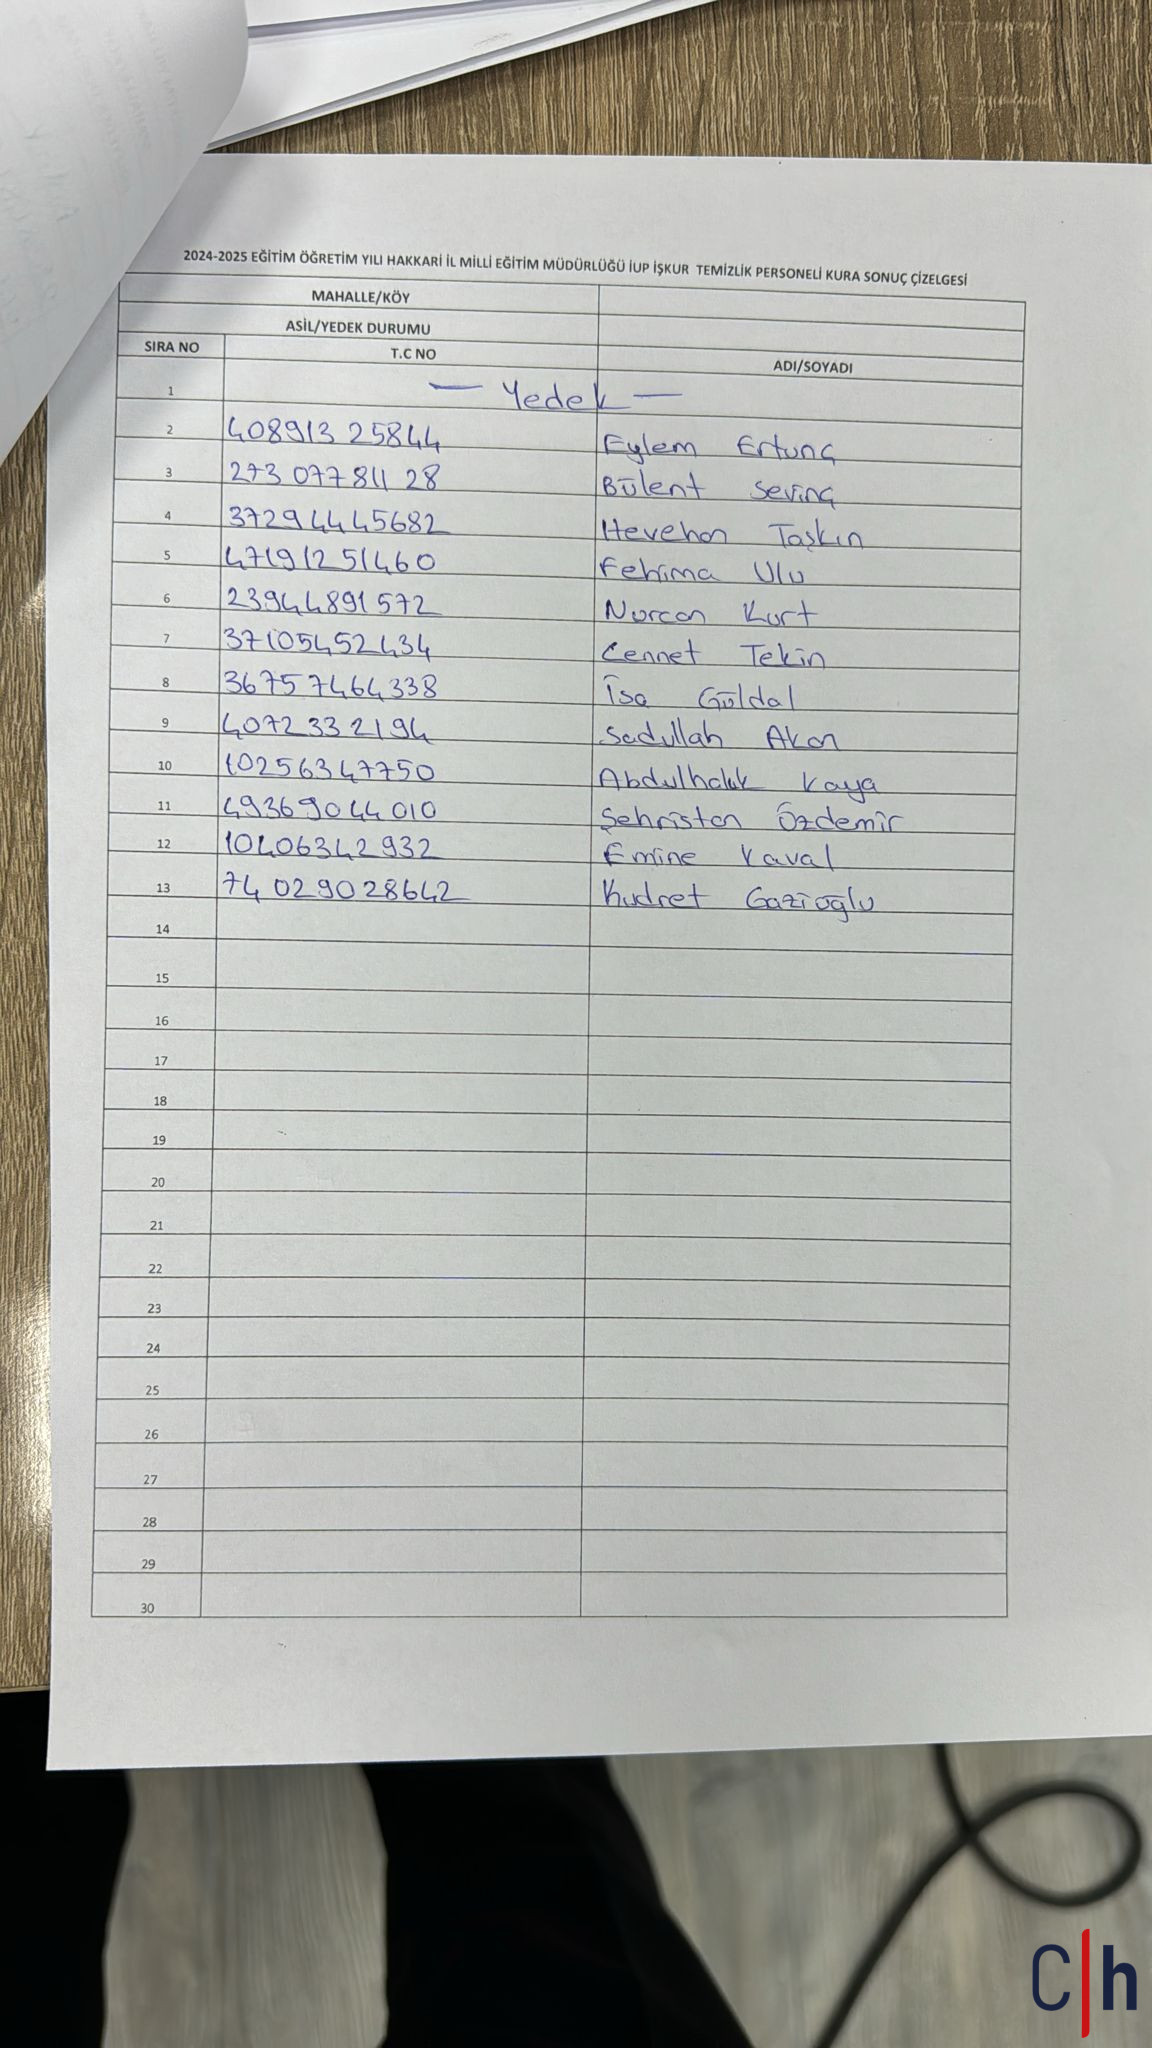 2024-2025 EĞİTİM ÖĞRETİM YILI HAKKARİ İL MİLLİ EĞİTİM MÜDÜRLÜĞÜ İUP İŞKUR TEMİZLİK PERSONELİ KURA SONUÇ ÇİZELGESİ
MAHALLE/KÖY
ASİL/YEDEK DURUMU
SIRA NO T.C NO ADI/SOYADI
1 — Yedek —
2 40891325844 Eylem Ertunç
3 27307781128 Bülent Sevinç
4 37294445682 Hevehan Taşkın
5 47191251460 Fehima Ulu
6 23944891572 Nurcan Kurt
7 37105452434 Cennet Tekin
8 36757464338 İsa Güldal
9 4072332194 Sadullah Akan
10 10256347750 Abdulhalık Kaya
11 49369044010 Şehristan Özdemir
12 10406342932 Emine Kaval
13 74029028642 Kudret Gazioğlu
14
15
16
17
18
19
20
21
22
23
24
25
26
27
28
29
30
C|h